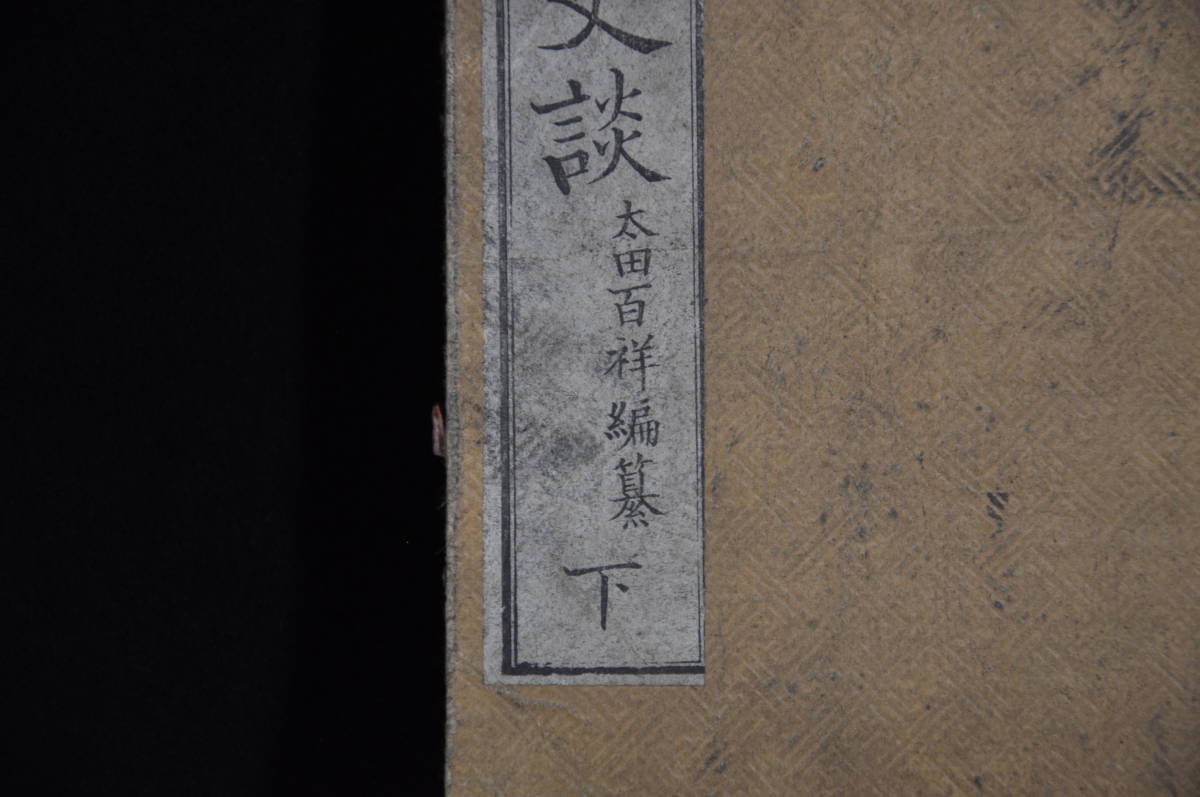 文談
太田百祥編纂
下